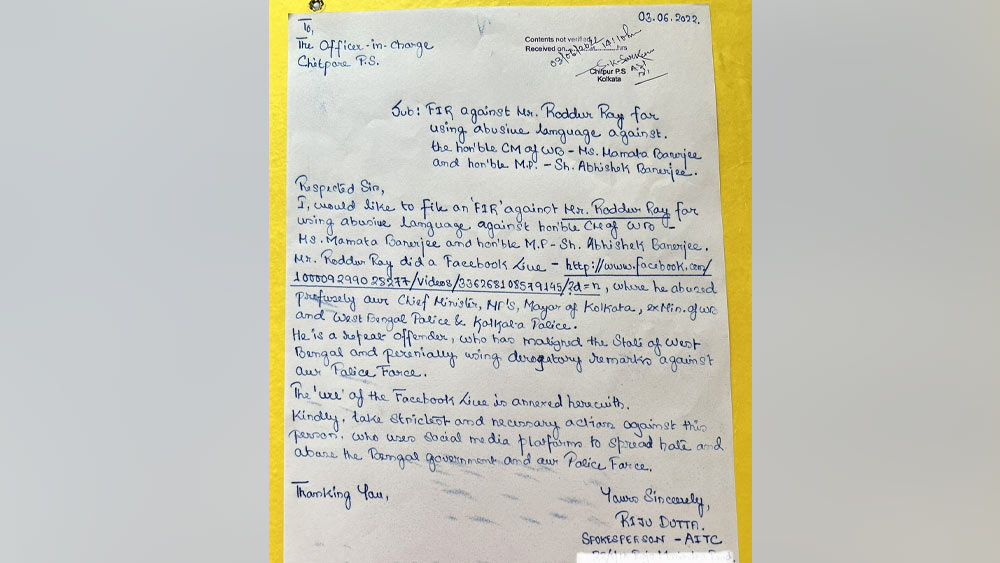 03.06.2022.
To,
The Officer-in-Charge
Chitpore P.S.
Contents not verified
Received on 03/06/2022 hrs
Chitpur P.S
Kolkata
Sub: FIR against Mr. Roddur Ray for
using abusive language against.
the hon'ble CM of WB - Ms. Mamata Banerjee
and hon'ble M.P. - Sh. Abhishek Banerjee.
Respected Sir,
I, would like to file an 'FIR' against Mr. Roddur Ray for
using abusive language against hon'ble CM of WB -
Ms. Mamata Banerjee and hon'ble M.P - Sh. Abhishek Banerjee.
Mr. Roddur Ray did a Facebook Live - http://www.facebook.com/
100009299028277/videos/336268108579145/?d=n, where he abused
profusely our Chief Minister, MP's, Mayor of Kolkata, ex Min. of WB
and West Bengal Police & Kolkata Police.
He is a repeat offender, who has maligned the State of West
Bengal and perenially using derogatory remarks against
our Police Force.
The 'url' of the Facebook Live is annexed herewith.
Kindly, take strictest and necessary action against this
person, who uses social media platforms to spread hate and
abuse the Bengal government and our Police Force.
Thanking You,
Yours Sincerely,
RIJU DUTTA.
SPOKESPERSON - AITC